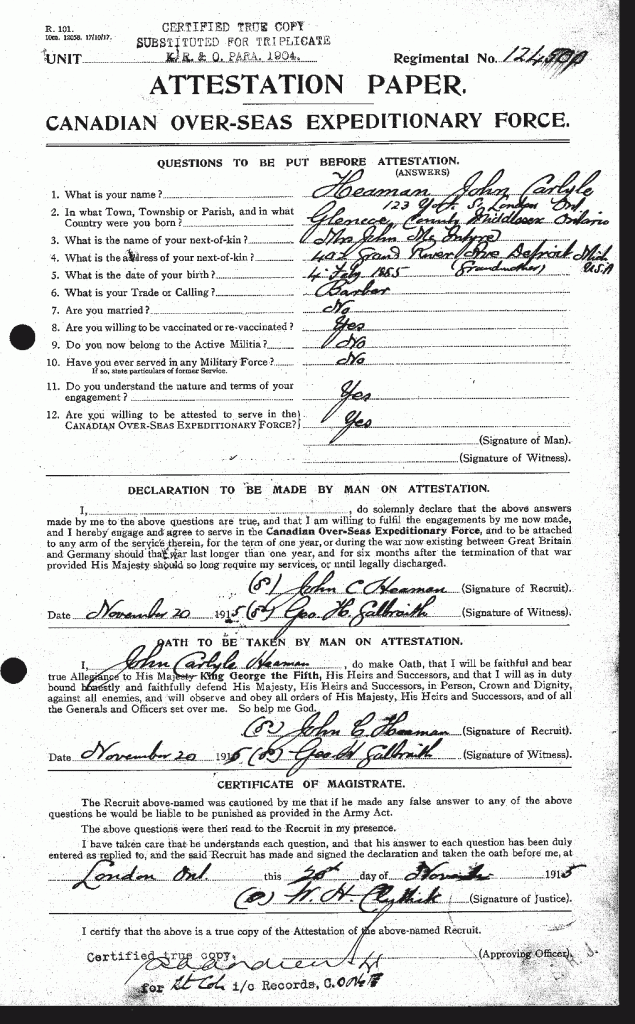 R. 101.
CERTIFIED TRUE COPY
SUBSTITUTED FOR TRIPLICATE
UNIT K.R. & O. PARA. 1904. Regimental No.
ATTESTATION PAPER.
CANADIAN OVER-SEAS EXPEDITIONARY FORCE.
QUESTIONS TO BE PUT BEFORE ATTESTATION.
(ANSWERS)
1. What is your name? Heaman John Carlyle
123 York St, London Ont.
2. In what Town, Township or Parish, and in what
Country were you born? Glencoe, County Middlesex Ontario
3. What is the name of your next-of-kin? Mrs John McIntyre
4. What is the address of your next-of-kin? 492 Grand River Ave Detroit Mich
U.S.A
5. What is the date of your birth? 4 Feby 1885 (Grandmother)
6. What is your Trade or Calling? Barber
7. Are you married? No
8. Are you willing to be vaccinated or re-vaccinated? Yes
9. Do you now belong to the Active Militia? No
10. Have you ever served in any Military Force? No
If so, state particulars of former Service.
11. Do you understand the nature and terms of your
engagement? Yes
12. Are you willing to be attested to serve in the
CANADIAN OVER-SEAS EXPEDITIONARY FORCE? Yes
(Signature of Man).
(Signature of Witness).
DECLARATION TO BE MADE BY MAN ON ATTESTATION.
I, , do solemnly declare that the above answers
made by me to the above questions are true, and that I am willing to fulfil the engagements by me now made,
and I hereby engage and agree to serve in the Canadian Over-Seas Expeditionary Force, and to be attached
to any arm of the service therein, for the term of one year, or during the war now existing between Great Britain
and Germany should that war last longer than one year, and for six months after the termination of that war
provided His Majesty should so long require my services, or until legally discharged.
(S) John C Heaman (Signature of Recruit)
Date November 20 1915 (S) Geo. H. Galbraith (Signature of Witness)
OATH TO BE TAKEN BY MAN ON ATTESTATION.
I, John Carlyle Heaman, do make Oath, that I will be faithful and bear
true Allegiance to His Majesty King George the Fifth, His Heirs and Successors, and that I will as in duty
bound honestly and faithfully defend His Majesty, His Heirs and Successors, in Person, Crown and Dignity,
against all enemies, and will observe and obey all orders of His Majesty, His Heirs and Successors, and of all
the Generals and Officers set over me. So help me God.
(S) John C. Heaman (Signature of Recruit)
Date November 20 1915 (S) Geo H Galbraith (Signature of Witness)
CERTIFICATE OF MAGISTRATE.
The Recruit above-named was cautioned by me that if he made any false answer to any of the above
questions he would be liable to be punished as provided in the Army Act.
The above questions were then read to the Recruit in my presence.
I have taken care that he understands each question, and that his answer to each question has been duly
entered as replied to, and the said Recruit has made and signed the declaration and taken the oath before me, at
London Ont. this 20th day of November 1915
(S) W. H. (Signature of Justice)
I certify that the above is a true copy of the Attestation of the above-named Recruit.
Certified true copy. (Approving Officer)
for Lt Col. i/c Records,